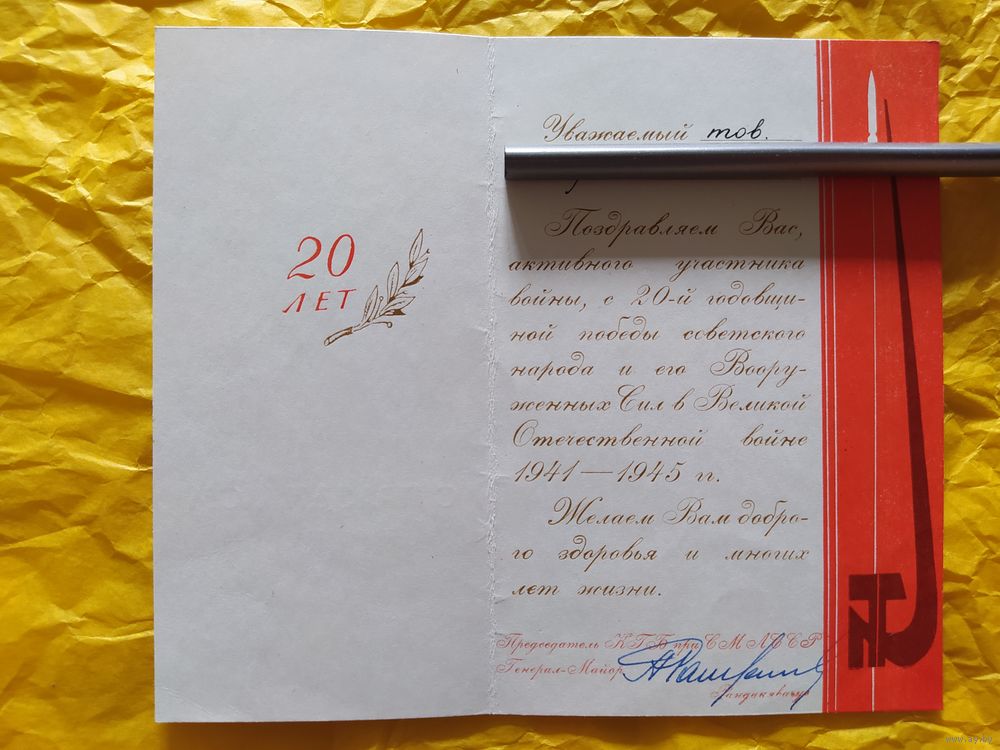 20
ЛЕТ
Уважаемый тов.
Поздравляем Вас,
активного участника
войны, с 20-й годовщи-
ной победы советского
народа и его Воору-
женных Сил в Великой
Отечественной войне
1941—1945 гг.
Желаем Вам добро-
го здоровья и многих
лет жизни.
Председатель КГБ при СМ ЛССР
Генерал-Майор
www.ay.by